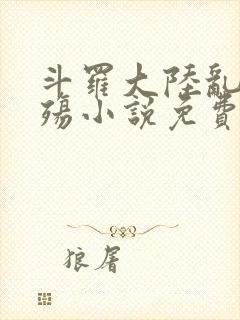 斗羅大陸亂
殤小說免費
狼居